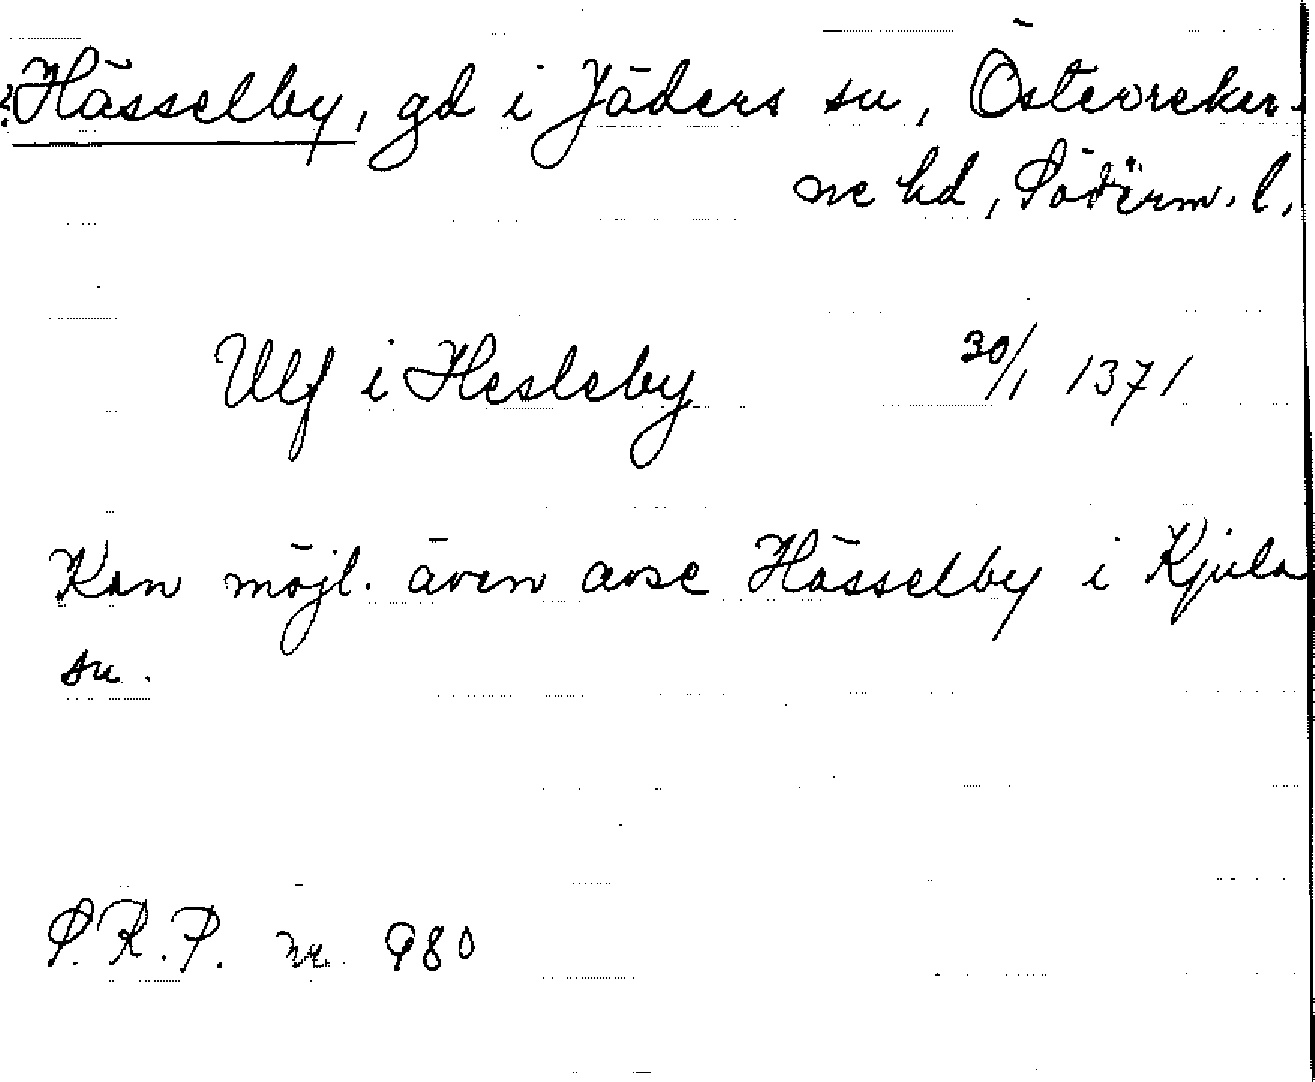 ?Hässelby, gd i Jäders sn, Österreker-
ne hd, Söderm. l.
Ulf i Hesleby 30/1 1371
Kan möjl. även avse Hässelby i Kjula
sn.
S.R.P. nr. 980